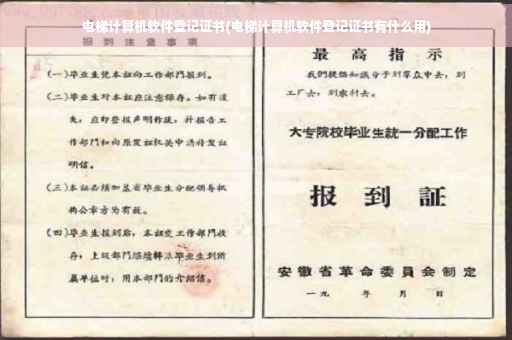 电梯计算机软件登记证书(电梯计算机软件登记证书有什么用)
报到注意事项
(一)毕业生凭本証向工作部門报到。
(二)毕业生对本証应注意保存。如有遗
失,应即登报声明作废,并报告工
作部門和向原发証机关申請补发証
明信。
(三)本証必須加盖省毕业生分配領导机
构公章方为有效。
(四)毕业生报到后,本証交工作部門收
存;上級部門
单位时,用本部門的介绍信。
最高指示
我們提倡知識分子到羣众中去,到
工厂去,到农村去。
大专院校毕业生統一分配工作
报到証
安徽省革命委員会制定
一九 年 月 日